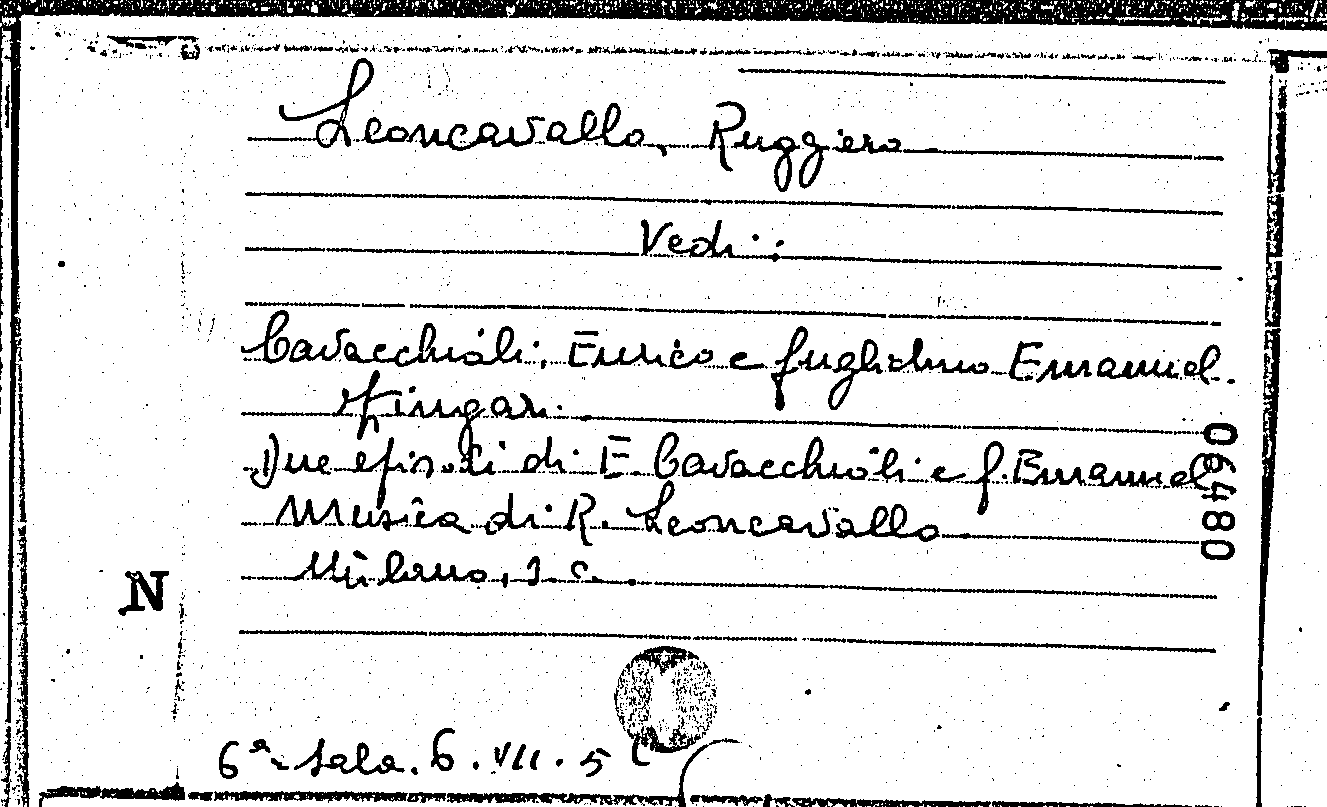 Leoncavallo, Ruggiero
Vedi:
Cavacchioli, Enrico e Guglielmo Emanuel.
Zingari.
Due episodi di E. Cavacchioli e G. Emanuel
Musica di R. Leoncavallo
Milano, s. c.
06480
N
6ª Sala. 6. VII. 5